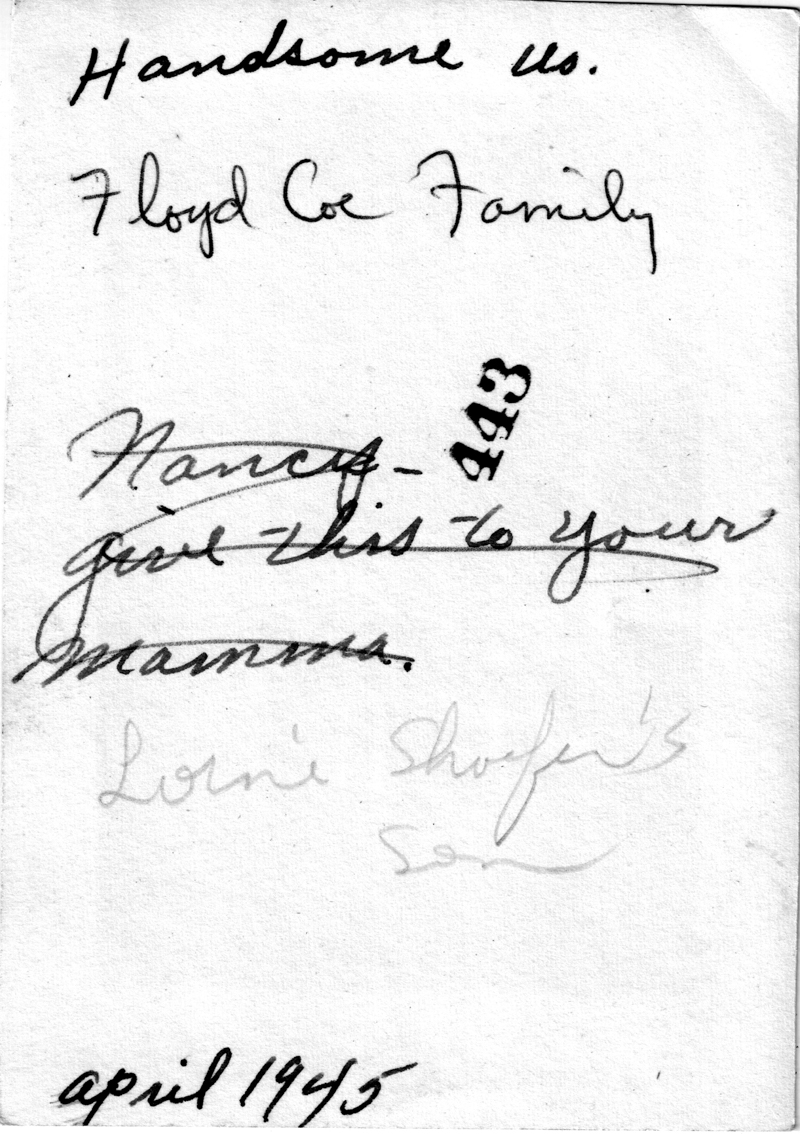 Handsome us.
Floyd Coe Family
443
Nancy-
give this to your
Mamma.
Lorne Shaefer's
Son
april 1945